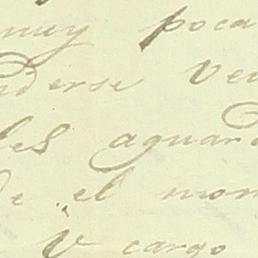 muy poca
nderse ve
les aguar
de el mon
V cargo